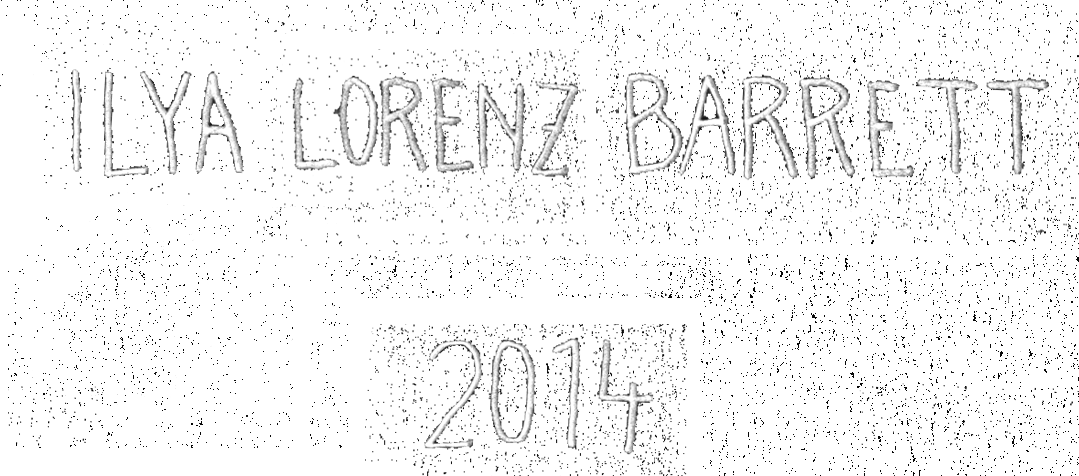 ILYA LORENZ BARRETT
2014